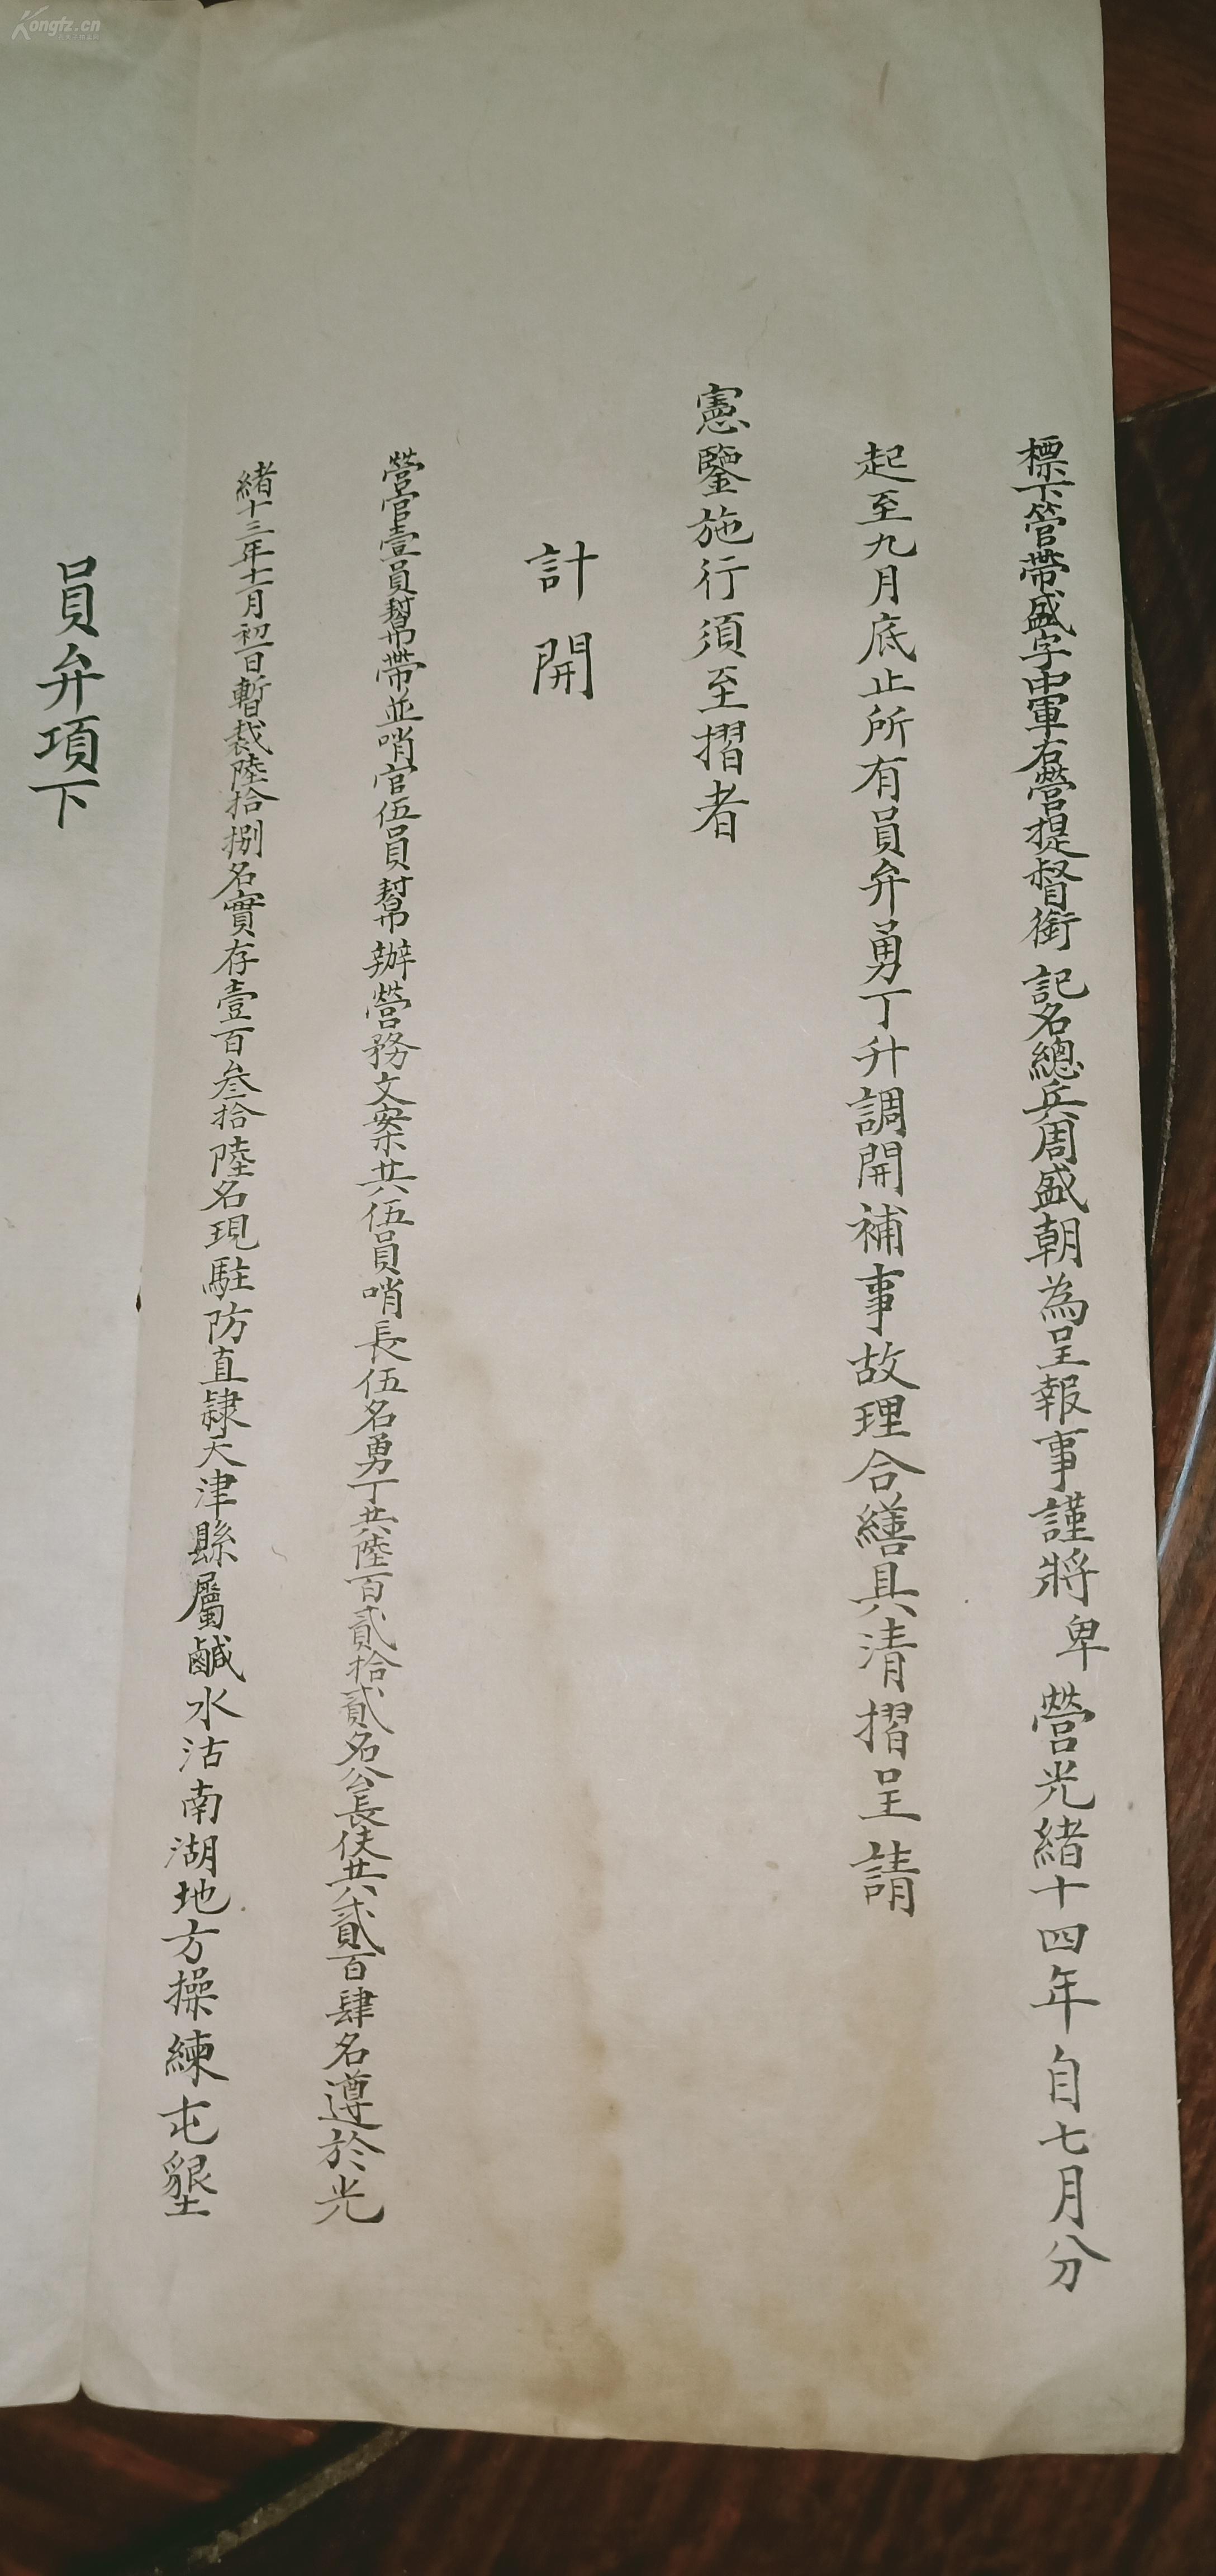 標下管帶盛字中軍右營提督銜記名總兵周盛朝為呈報事謹將卑營光緒十四年自七月分
起至九月底止所有員弁勇丁升調開補事故理合繕具清摺呈請
憲鑒施行須至摺者
計開
營官壹員幫帶並哨官伍員幫辦營務文案共伍員哨長伍名勇丁共陸百貳拾貳名公長伕共貳百肆名遵於光
緒十三年十一月初一日暫裁陸拾捌名實存壹百叁拾陸名現駐防直隸天津縣屬鹹水沽南湖地方操練屯墾
員弁項下
Kongfz.cn